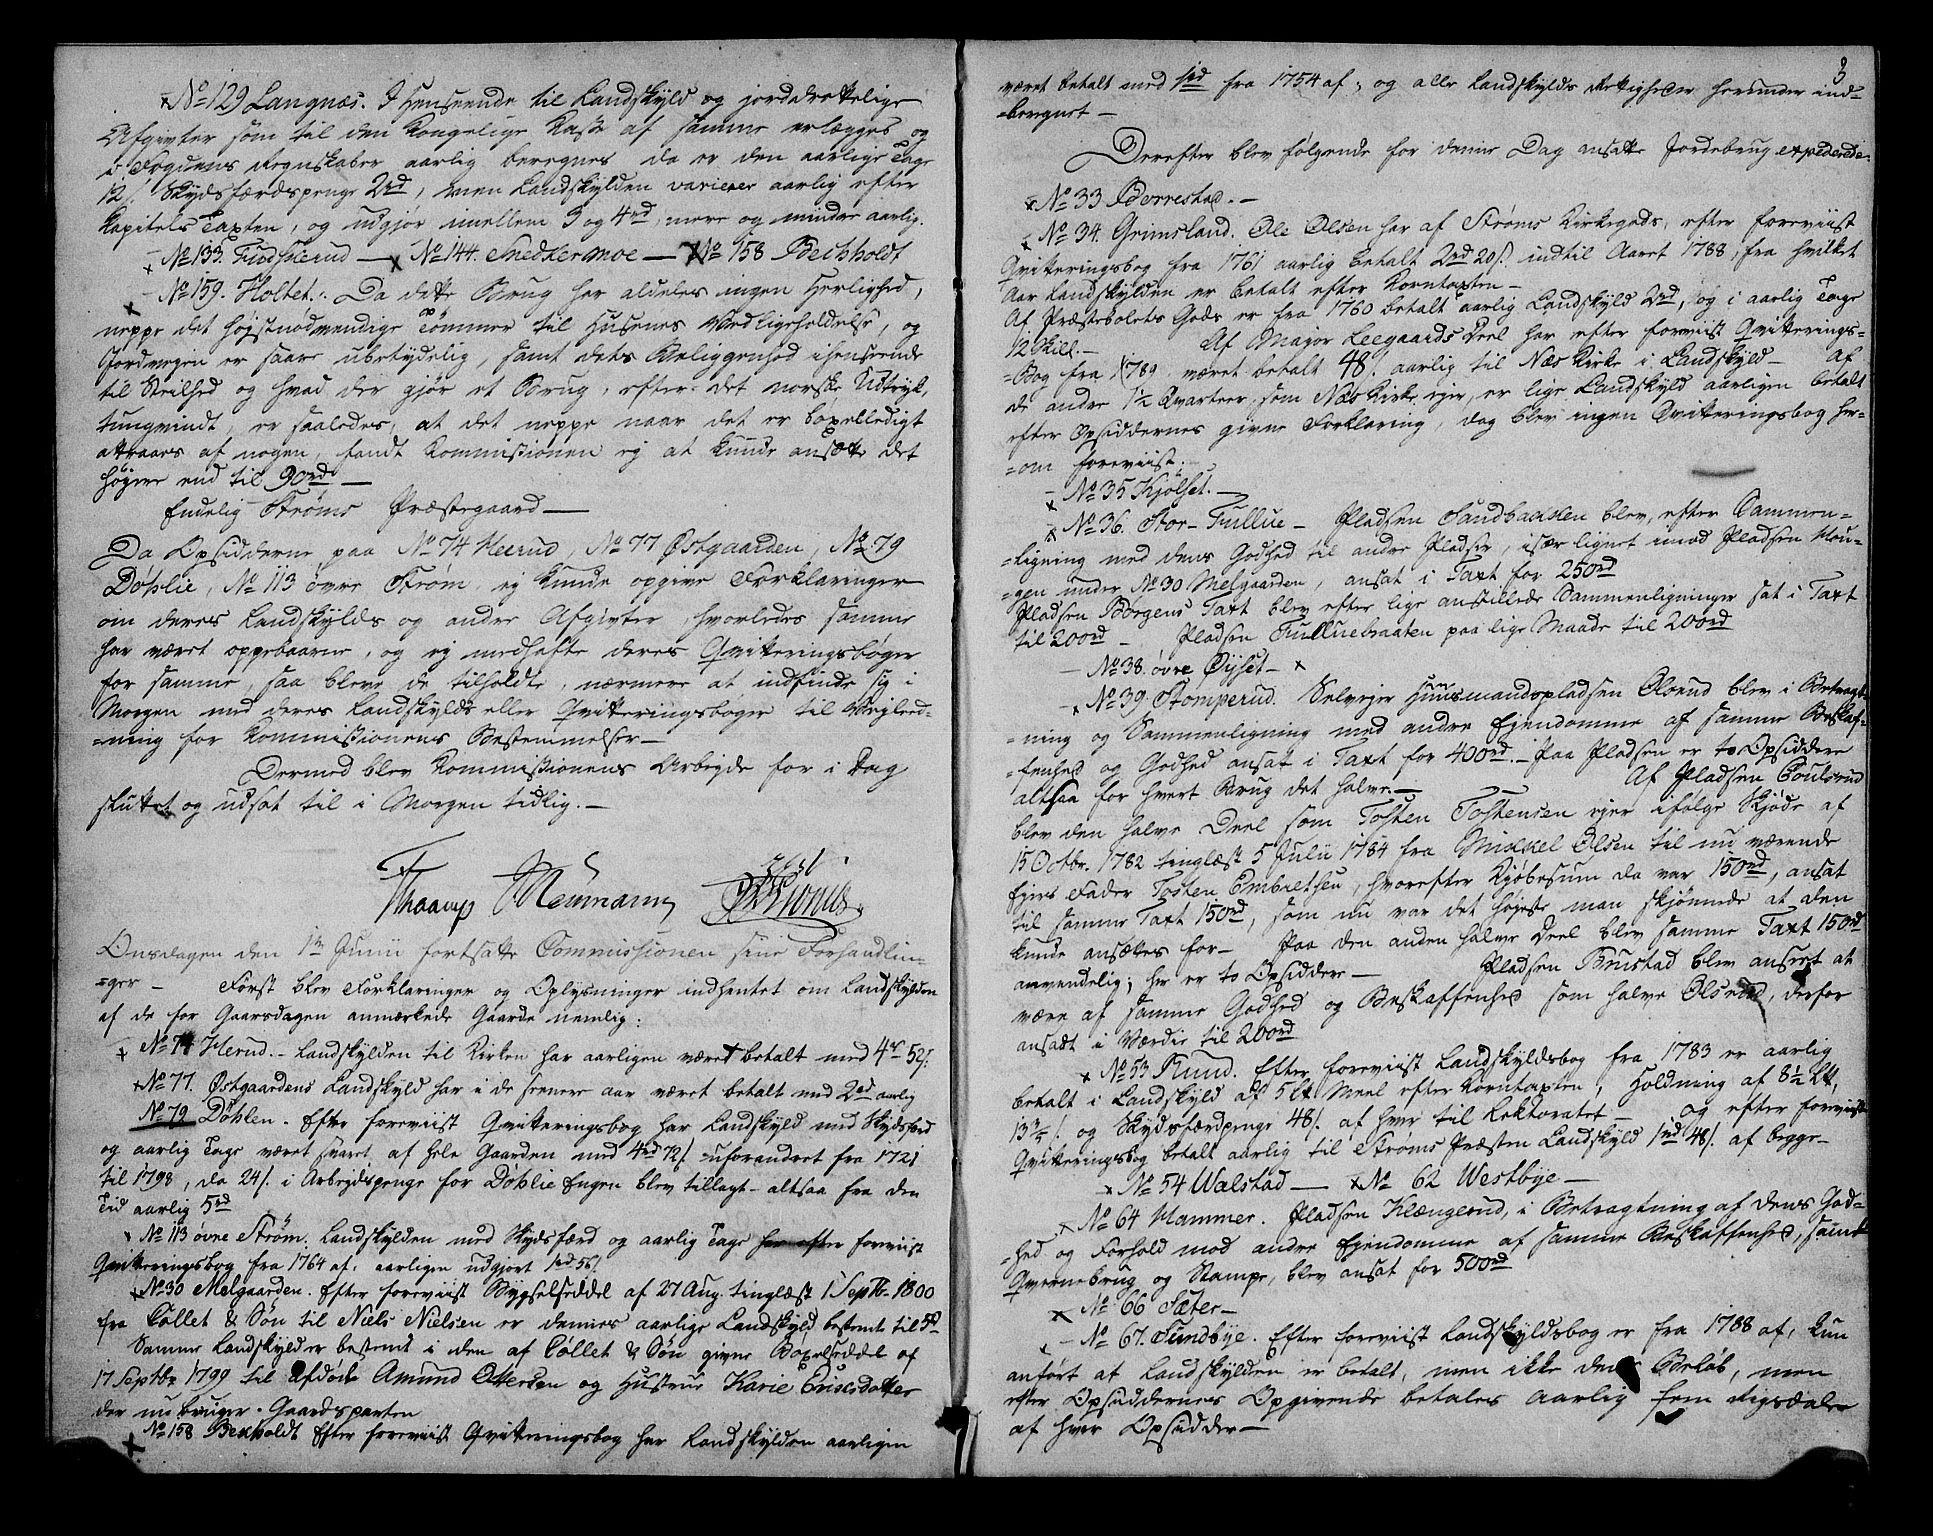 No 129 Langnæs. I Henseende til Landskyld og jorddrottelige
Afgivter som til den Kongelige Kasse af samme erlægges og
i Fogdens Regnskaber aarlig beregnes, da er den aarlige Tage
12 s. Skydsfærdspenge 2rd, men Landskylden varierer aarlig efter
Kapitels Taxten, og udgjør imellem 3 og 4rd, mere og mindre aarlig.
No 133. Findsterud — No 144. Snedkermoe — No 158 Bechholdt
No 159. Holtet. Da dette Brug har aldeles ingen Herlighed,
neppe det høistnødvendige Tømmer til Husenes Vedligeholdelse, og
Jordvejen er saare ubetydelig, samt dets Beliggenhed ihenseende
til Steilhed og hvad der gjør et Brug, efter det norske Udtryk,
tungvindt, er saaledes, at det neppe naar det er bøxelledigt
attraaes af nogen, fandt Kommissionen ej at kunde ansætte det
høiere end til 90rd —
Endelig Strøms Præstegaard —
Da Opsidderne paa No 74 Heerud, No 77 Østgaarden, No 79
Döhlie, No 113 övre Strøm, ej kunde opgive Forklaringer
om deres Landskylds og andre Afgivter, hvorledes samme
har været oppebaarne, og ej medhafte deres Qvitteringsbøger
for samme, saa bleve de tilholdte, nærmere at indfinde sig i
Morgen med deres Landskylds eller Qvitteringsbøger til Vejled-
-ning for Kommissionens Bestemmelser —
Dermed blev Kommissionens Arbejde for i Dag
sluttet og udsat til i Morgen tidlig. —
Thaarup Neumann
Onsdagen den 1te Junii fortsatte Commissionen sine Forhandlin-
-ger — Først blev Forklaringer og Oplysninger indhentet om Landskylden
af de for Gaarsdagen anmærkede Gaarde nemlig:
No 74 Herud. — Landskylden til Kirken har aarligen været betalt med 4rd 52 s.
No 77. Østgaardens Landskyld har i de seenere aar været betalt med 2rd aarlig
No 79 Döhlen. Efter foreviist Qvitteringsbog har Landskyld med Skydsfærd
og aarlig Tage været svaret af hele Gaarden med 4rd 72 s. uforandret fra 1721
til 1798, da 24 s. i Arbejdspenge for Döhlie Engen blev tillagt — altsaa fra den
Tid aarlig 5rd
No 113 övre Strøm. Landskylden med Skydsfærd og aarlig Tage har efter foreviist
Qvitteringsbog fra 1764 af, aarligen udgjort 1rd 56 s.
No 30 Melgaarden. Efter foreviist Bygselseddel af 27 Aug. tinglæst 1 Septb. 1800
fra Collet & Søn til Niels Nielsen er dennes aarlige Landskyld bestemt til 5rd
Samme Landskyld er bestemt i den af Collet & Søn givne Bøxelseddel af
17 Septbr. 1799 til afdøde Amund Ottersen og Hustrue Karie Ericsdotter
der nu bruger Gaardsparten
No 158 Bekholdt Efter foreviist Qvitteringsbog har Landskylden aarligen
3
været betalt med 1rd fra 1754 af; og alle Landskylds Rettigheder herunder ind-
-beregnet —
Derefter blev følgende for denne Dag ansatte Jordebrug expederede
No 33 Borrestad. —
No 34. Grimsland. Ole Olsen har af Strøms Kirkegods, efter foreviist
Qvitteringsbog fra 1761 aarlig betalt 2rd 20 s. indtil Aaret 1788, fra hvilket
Aar Landskylden er betalt efter Korntaxten —
Af Præstebolets Gods er fra 1760 betalt aarlig Landskyld 2rd, og i aarlig Tage
12 Skill. — Af Major Leegaards Deel har efter foreviist Qvitterings-
-Bog fra 1789 været betalt 48 s. aarlig til Næs Kirke i Landskyld — Af
de andre 1½ Quarteer, som Næs Kirke ejer, er lige Landskyld aarligen betalt
efter Opsiddernes givne Forklaring, dog blev ingen Qvitteringsbog her-
-om foreviist.
No 35 Kjölset. —
No 36. Stor-Fullue — Pladsen Sandbakken blev, efter Sammen-
-ligning med dens Godhed til andre Pladse, især lignet imod Pladsen Hou-
-gen under No 30 Melgaarden, ansat i Taxt for 250rd
Pladsen Borgens Taxt blev efter lige anstillede Sammenligninger sat i Taxt
til 200rd — Pladsen Fulluebraaten paa lige Maade til 200rd
No 38 övre Öyset —
No 39 Stomperud. Selvejer Huusmandspladsen Olsrud blev i Betragt-
-ning og Sammenligning med andre Ejendomme af samme Beskaf-
-fenhed og Godhed ansat i Taxt for 400rd — Paa Pladsen er to Opsiddere
altsaa for hvert Brug det halve. — Af Pladsen Poulsrud
blev den halve Deel som Tosten Tostensen ejer ifølge Skjøde af
15 Octbr. 1782 tinglæst 5 Julii 1784 fra Mikkel Olsen til nu værende
Ejers Fader Tosten Embretsen, hvorefter Kjøbesum da var 150rd, ansat
til samme Taxt 150rd, som nu var det højeste man skjønnede at den
kunde ansættes for — Paa den anden halve Deel blev samme Taxt 150rd
anvendelig; her er to Opsiddere — Pladsen Brustad blev anseet at
være af samme Godhed og Beskaffenhed som halve Olsrud, derfor
ansadt i Værdie til 200rd
No 53 Rund. Efter foreviist Landskyldsbog fra 1783 er aarlig
betalt i Landskyld af 5 Lt Meel efter Korntaxten, Holdning af 8½ Lt.
og Skydsfærdpenge 48 s. af hver til Lektoratet — og efter foreviist
Qvitteringsbog betalt aarlig til Strøms Præsten Landskyld 1rd 48 s. af begge —
No 54 Walstad — No 62 Westbye —
No 64 Hammer. Pladsen Klængerud, i Betragtning af dens God-
-hed og Forhold mod andre Ejendomme af samme Beskaffenhed, samt
Qvernebrug og Stampe, blev ansat for 500rd
No 66 Sæter —
No 67. Sundbye. Efter foreviist Landskyldsbog er fra 1788 af, kun
anført at Landskylden er betalt, men ikke dens Beløb, men
efter Opsiddernes Opgivende betales aarlig fem Rigsdaler
af hver Opsidder —